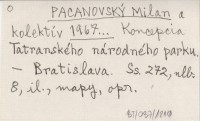 0
PACANOVSKÝ Milan a
kolektív 1967... Koncepcia
Tatranského národného parku.
– Bratislava. Ss 272, nllb
8, il., mapy, opr.